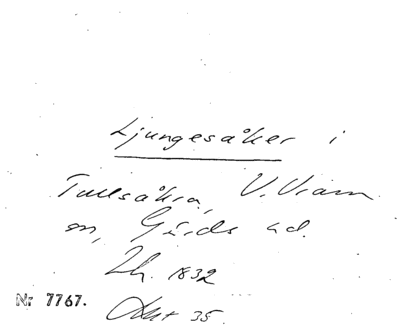 Ljungesåker i
Tullsåkra, V. Vram
sn, Gärds hd.
Lh. 1832
Akt 35.
Nr 7767.